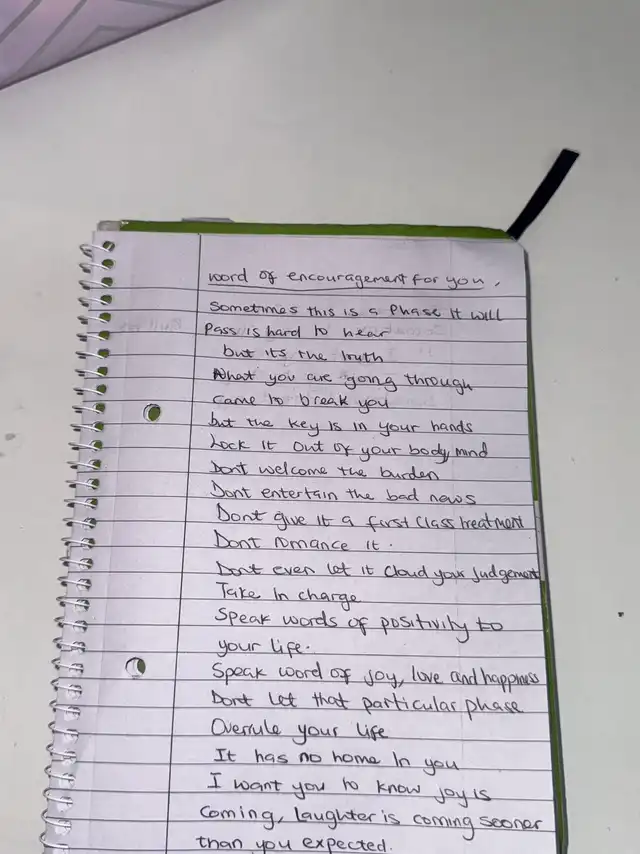 word of encouragement for you.
Sometimes this is a Phase It will
Pass is hard to hear
but its the truth
What you are going through
came to break you
but the key is in your hands
Lock it out of your body, mind
Dont welcome the burden
Dont entertain the bad news
Dont give it a first class treatment
Dont romance it.
Dont even let it cloud your judgement
Take In charge
Speak words of positivity to
your life.
Speak word of joy, love and happiness
Dont let that particular phase
Overrule your life
It has no home In you
I want you to know joy is
coming, laughter is coming sooner
than you expected.